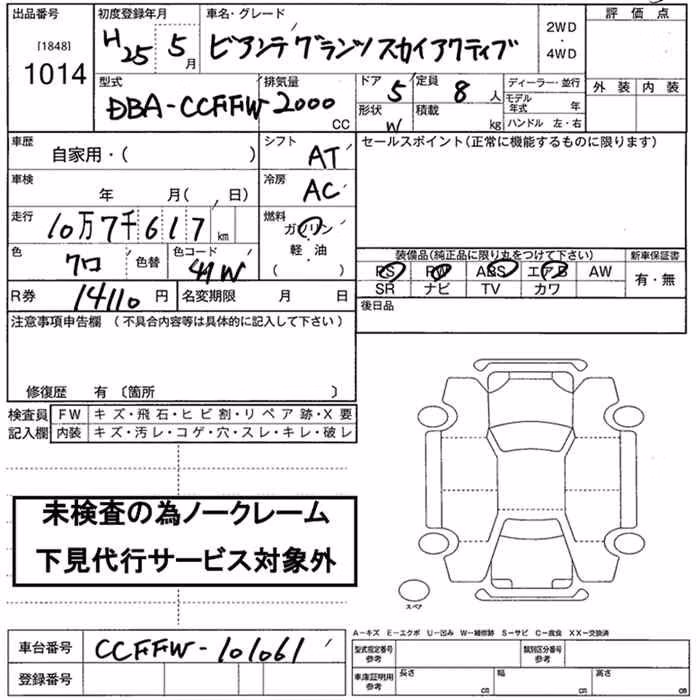 出品番号
[1848]
1014
初度登録年月
H25 5月
車名・グレード
ビアンテ グランツ スカイアクティブ
2WD
・
4WD
評価点
外装 内装
型式
DBA-CCFFW
排気量
2000
CC
ドア 5
定員 8人
形状 W
積載 kg
ディーラー・並行
モデル年式 年
ハンドル 左・右
車歴
自家用・( )
シフト
AT
セールスポイント(正常に機能するものに限ります)
車検
年 月( 日)
冷房
AC
走行
10万7千617km
燃料
ガソリン
・
軽・油
( )
色
クロ
色替
色コード
41W
装備品(純正品に限り丸をつけて下さい)
PS PW ABS エアB AW
SR ナビ TV カワ
新車保証書
有・無
R券 14110円
名変期限 月 日
後日品
注意事項申告欄(不具合内容等は具体的に記入して下さい)
修復歴 有〔箇所 〕
検査員記入欄
FW キズ・飛石・ヒビ割・リペア跡・X要
内装 キズ・汚レ・コゲ・穴・スレ・キレ・破レ
未検査の為ノークレーム
下見代行サービス対象外
スペア
A-キズ E-エクボ U-凹み W-補修跡 S-サビ C-腐食 XX-交換済
車台番号 CCFFW-101061
登録番号
型式指定番号参考
類別区分番号参考
車庫証明用参考
長さ cm
幅 cm
高さ cm